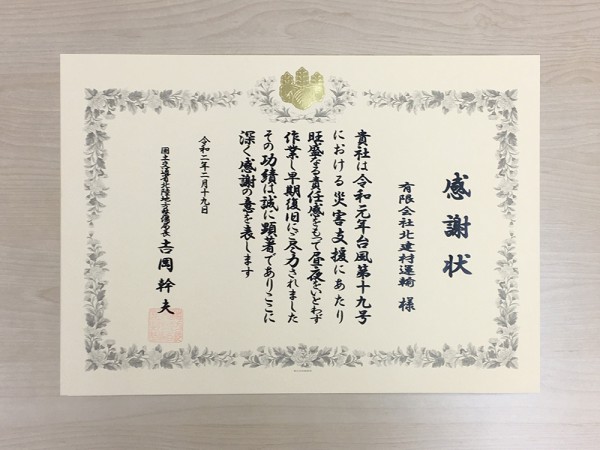 感謝状
有限会社北建村運輸 様
貴社は令和元年台風第十九号
における災害支援にあたり
旺盛なる責任感をもって昼夜をいとわず
作業し早期復旧にご尽力されました
その功績は誠に顕著でありここに
深く感謝の意を表します
令和二年二月十九日
国土交通省北陸地方整備局長 吉岡幹夫